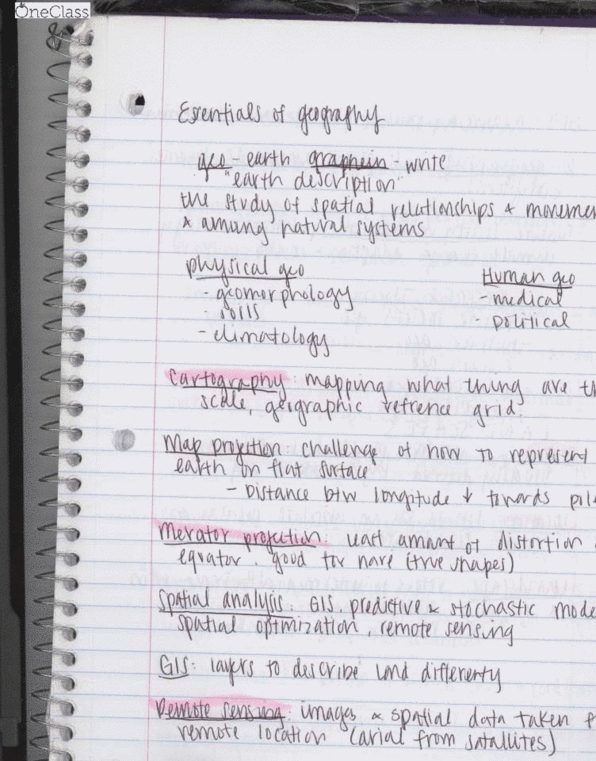 OneClass
Essentials of geography
geo - earth graphein - write
"earth description"
the study of spatial relationships & movemen
& among natural systems
physical geo
- geomorphology
- soils
- climatology
Human geo
- medical
- political
Cartography: mapping what thing are th
scale, geographic refrence grid.
Map projection: challenge of how to represent
earth on flat surface
- Distance btw longitude ↓ towards
Merator projection: least amount of distortion
equator. good for (true shapes)
Spatial analysis. GIS, predictive & stochastic mode
spatial optimization, remote sensing
GIS: layers to describe land differenty
Remote sensing: images & spatial data taken f
remote location (arial from satallites)